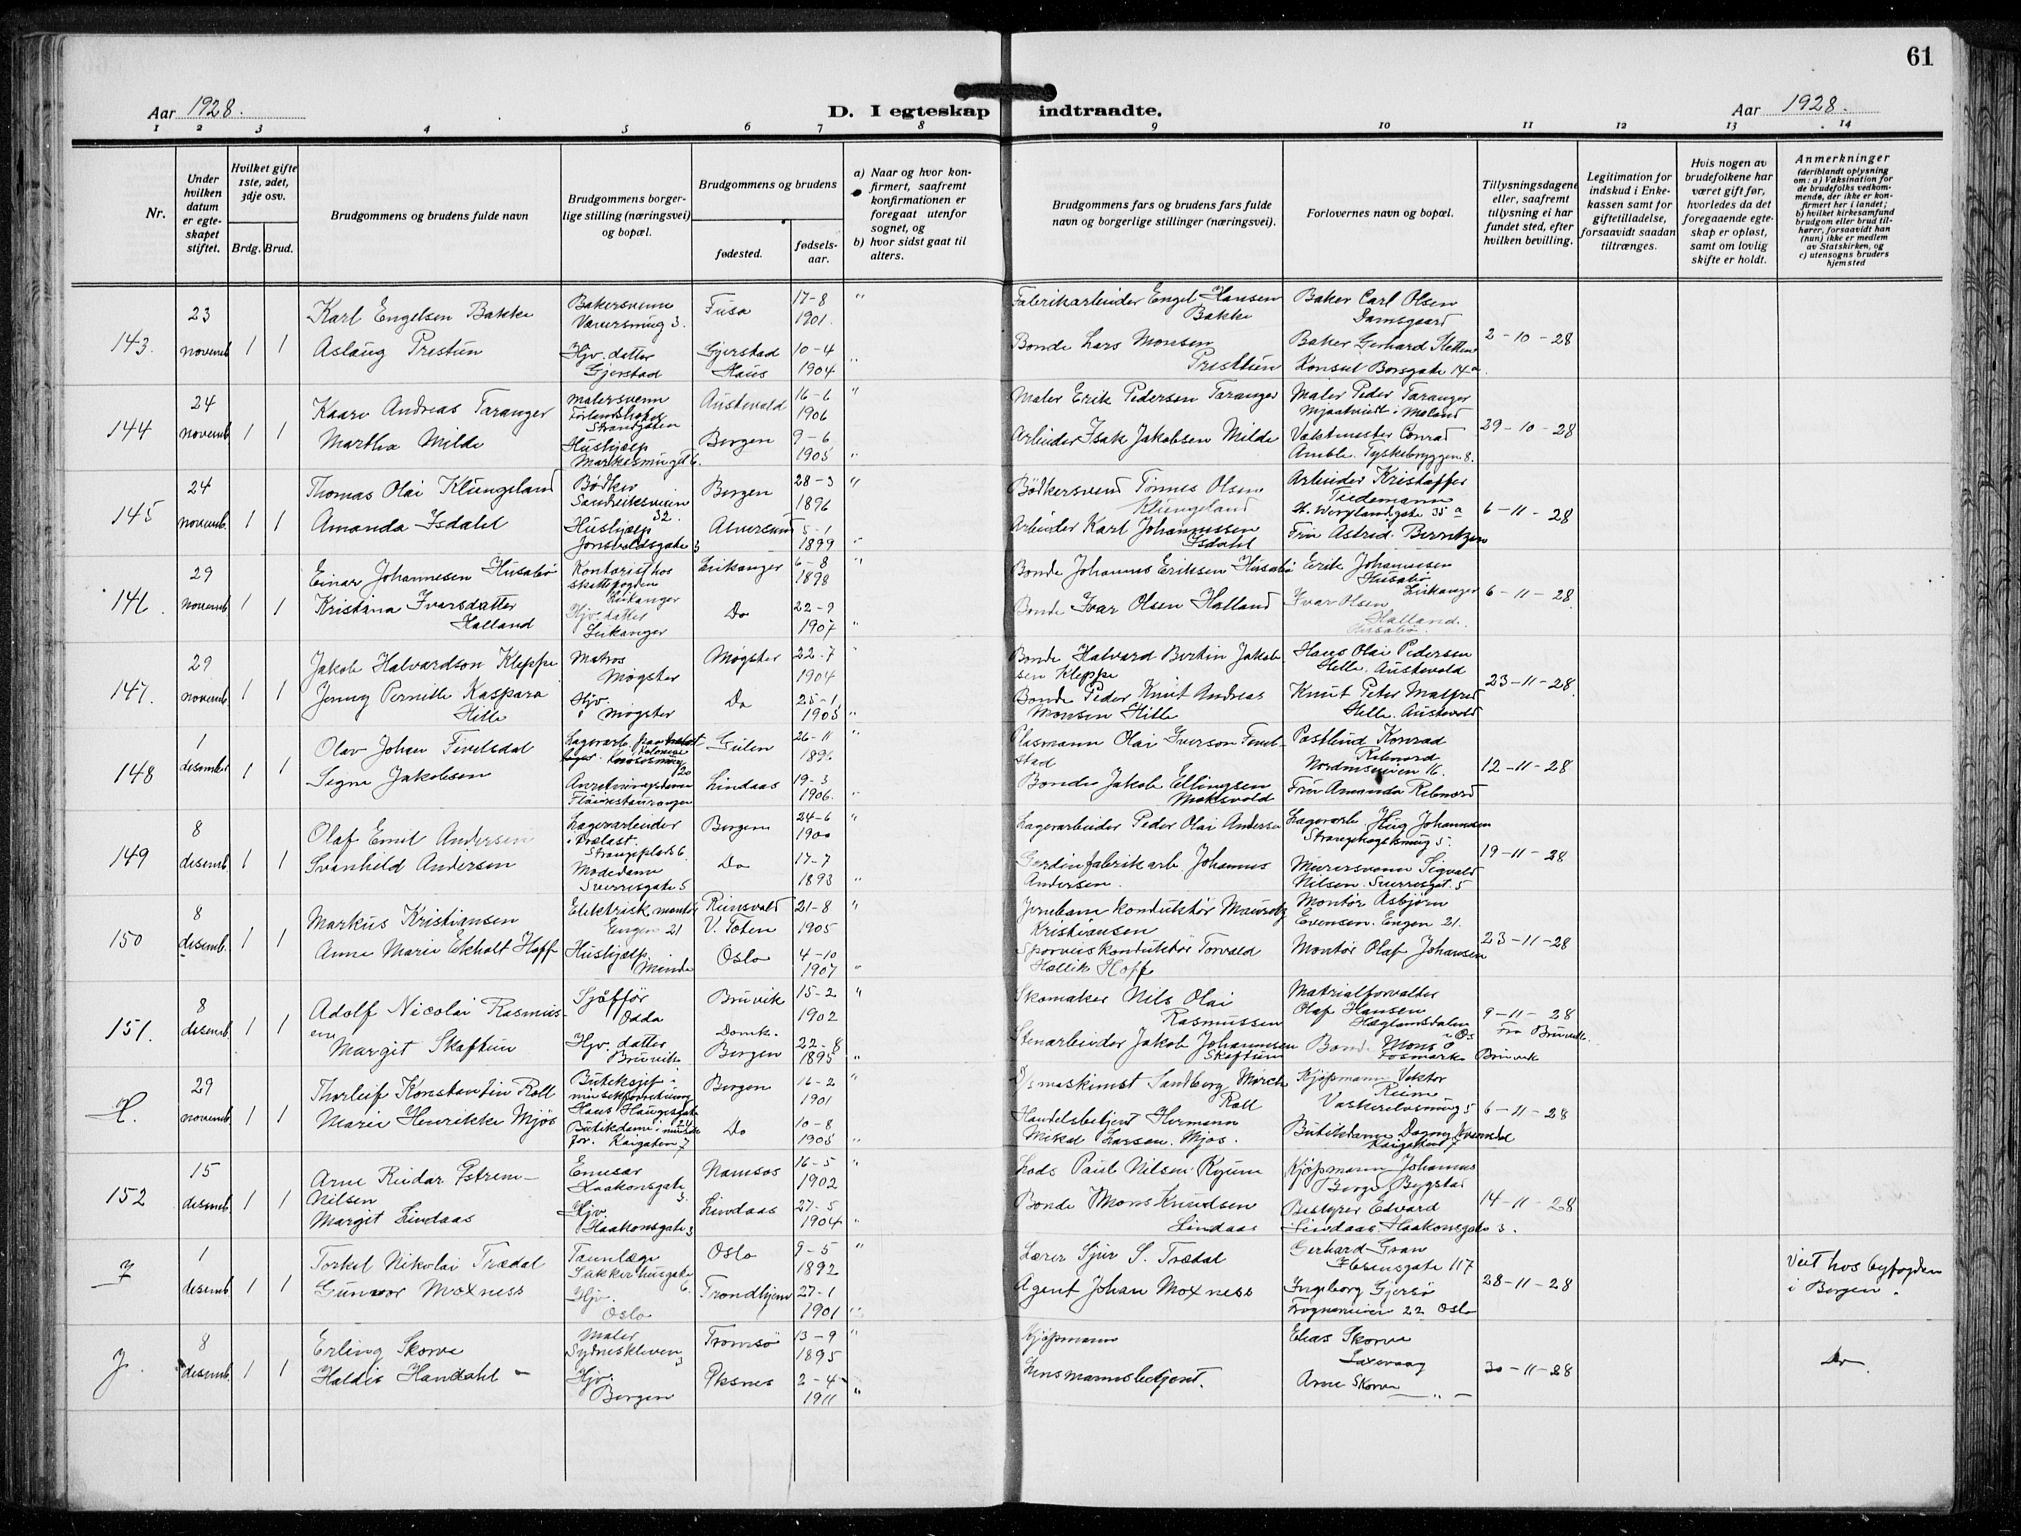 61
Aar 1928.
D. I egteskap indtraadte.
Aar 1928.
1 2 3 4 5 6 7 8 9 10 11 12 13 14
Nr.
Under hvilken datum er egteskapet stiftet.
Hvilket gifte 1ste, 2det, 3dje osv.
Brdg. Brud.
Brudgommens og brudens fulde navn
Brudgommens borgerlige stilling (næringsvei) og bopæl.
Brudgommens og brudens
fødested.
fødselsaar.
a) Naar og hvor konfirmert, saafremt konfirmationen er foregaat utenfor sognet, og
b) hvor sidst gaat til alters.
Brudgommens fars og brudens fars fulde navn og borgerlige stillinger (næringsvei).
Forlovernes navn og bopæl.
Tillysningsdagene eller, saafremt tillysning ei har fundet sted, efter hvilken bevilling.
Legitimation for indskud i Enkekassen samt for giftetilladelse, forsaavidt saadan tiltrænges.
Hvis nogen av brudefolkene har været gift før, hvorledes da det foregaaende egteskap er opløst, samt om lovlig skifte er holdt.
Anmerkninger (deriblandt oplysning om: a) Vaksination for de brudefolks vedkommende, der ikke er konfirmert her i landet; b) hvilket kirkesamfund brudgom eller brud tilhører, forsaavidt han (hun) ikke er medlem av Statskirken, og c) utensogns bruders hjemsted
143. 23 novemb. 1 1
Karl Engelsen Bakke
Bakersvenn
Fusa 17-8 1901.
Fabrikarbeider Engel Hansen Bakke
Baker Carl Olsen
Damsgaard
2-10-28
Aslaug Prestun
Hjv. datter
Gjerstad
Gjerstad Haus 10-4 1904
Bonde Lars Monsen
Presttun
Baker Gerhard
Konsul Børsgate 14a.
144 24 novemb. 1 1
Kaare Andreas Taranger
Malersvenn
Strandgaten
Austevold 16-6 1906
Maler Erik Pedersen Taranger
Maler Peder Taranger
29-10-28
Martha Milde
Hushjælp
Bergen 9-6 1905
Arbeider Isak Jakobsen Milde
Vaktmester Conrad
Amble. Tyskebryggen 8.
145 24 novemb. 1 1
Thomas Olai Klungeland
Bødker
Sandviksveien 32.
Bergen 28-3 1896
Bødkersvend Tønnes Olsen
Klungeland
Arbeider Kristoffer
Tiedemann
6-11-28
Amanda Isdahl
Hushjælp
Alversund 5-1 1899
Arbeider Karl Johannessen
Isdahl
Fru Astrid Berntzen
146. 29 novemb. 1 1
Einar Johannesen Husabø
Kontorist hos
skattefogden
Leikanger
Leikanger 6-8 1898
Bonde Johannes Eriksen Husabø
Erik Johannesen
Husabø
Leikanger
6-11-28
Kristina Ivarsdatter
Halland
Hjv. datter
Leikanger
Do 22-9 1907
Bonde Ivar Olsen Halland
Ivar Olsen
Halland.
147. 29 novemb. 1 1
Jakob Halvardson Kleppe
Matros
Møgster
Møgster 22-7 1904
Bonde Halvard Bertin Jakobsen Kleppe
Hans Olai Pedersen
Hille. Austevold
23-11-28.
Jenny Pernille Kaspara
Hille
Hjv.
i Møgster
Do 25-1 1905
Bonde Peder Knut Andreas
Monsen Hille
Knut Peter Malfred
Hille. Austevold
148 1 desember 1 1
Olav Johan
Gulen 26-11 1896
Postbud Konrad
16.
12-11-28
Signe Jakobsen
Lindaas 19-3 1906.
Bonde Jakob Ellingsen
Fru Amanda
149 8 desemb. 1 1
Olaf Emil Andersen
Lagerarbeider
Bergen 24-6 1900
Lagerarbeider Peder Olai Andersen
19-11-28
Svanhild Andersen
Modedame
Sverresgate 5
Do 17-7 1893
Johannes
Andersen.
Murersvenn Sigvald
Nilsen. Sverresgt. 5
150 8 desemb. 1 1
Markus Kristiansen
Elektrisk montør
Engen 21
V. Toten 21-8 1905
Jernbane konduktør
Kristiansen
Montør Asbjørn
Evensen. Engen 21.
23-11-28
Anne Marie Ekholt Hoff
Hushjælp
Minde
Oslo 4-10 1907
Sporveiskonduktør Torvald
Hoff
Montør Olaf Johansen
151. 8 desemb. 1 1
Adolf Nicolai Rasmussen
Sjåfør
Odda
Bruvik 15-2 1902
Skomaker Nils Olai
Rasmussen
Matrialforvalter
Olaf Hansen
9-11-28
Fra Bruvik.
Margit Skaftun
Hjv. datter
Bruvik
Domk. Bergen 22-8 1895
Stenarbeider Jakob Johannessen
Skaftun
Bonde Mons
Bruvik
29 novemb. 1 1
Thorleif Konstantin Roll
Bergen 16-2 1901
Sandberg Mørch
Roll
Kjøpmann
6-11-28
Marie Henrikke Mjøs
Kaigaten 7
Do 10-8 1905
Handelsbetjent Hermann
Mikal Larsen Mjøs.
152 15 desemb. 1 1
Arne Reidar
Nilsen
Haakonsgate 3.
Namsos 16-5 1902
Lods Paul Nilsen Ryum
Kjøpmann Johannes
Bygstad
14-11-28
Margit Lindaas
Hjv.
Haakonsgate 3
Lindaas 27-5 1904
Bonde Mons Knudsen
Lindaas
Bestyrer Edvard
Lindaas Haakonsgate 3.
7 1 desemb. 1 1
Torkel Nikolai Trædal
Tannlæge
Sukkerhusgate 6.
Oslo 9-5 1892
Lærer Sjur S. Trædal
Gerhard Gran
117
28-11-28
Viet hos byfogden
i Bergen.
Gunvor Moxness
Hjv.
Oslo
Trondhjem 27-1 1901
Agent Johan Moxness
Ingeborg Gjersø
Frognerveien 22 Oslo
8 desemb. 1 1
Erling Skorve
Maler
Sydneskleven 3
Tromsø 13-9 1895
Kjøpmann
Elias Skorve
Laxevaag
30-11-28
Do
Haldis Handahl
Hjv.
Bergen
Øksnes 2-4 1911
Lensmannsbetjent.
Arne Skorve